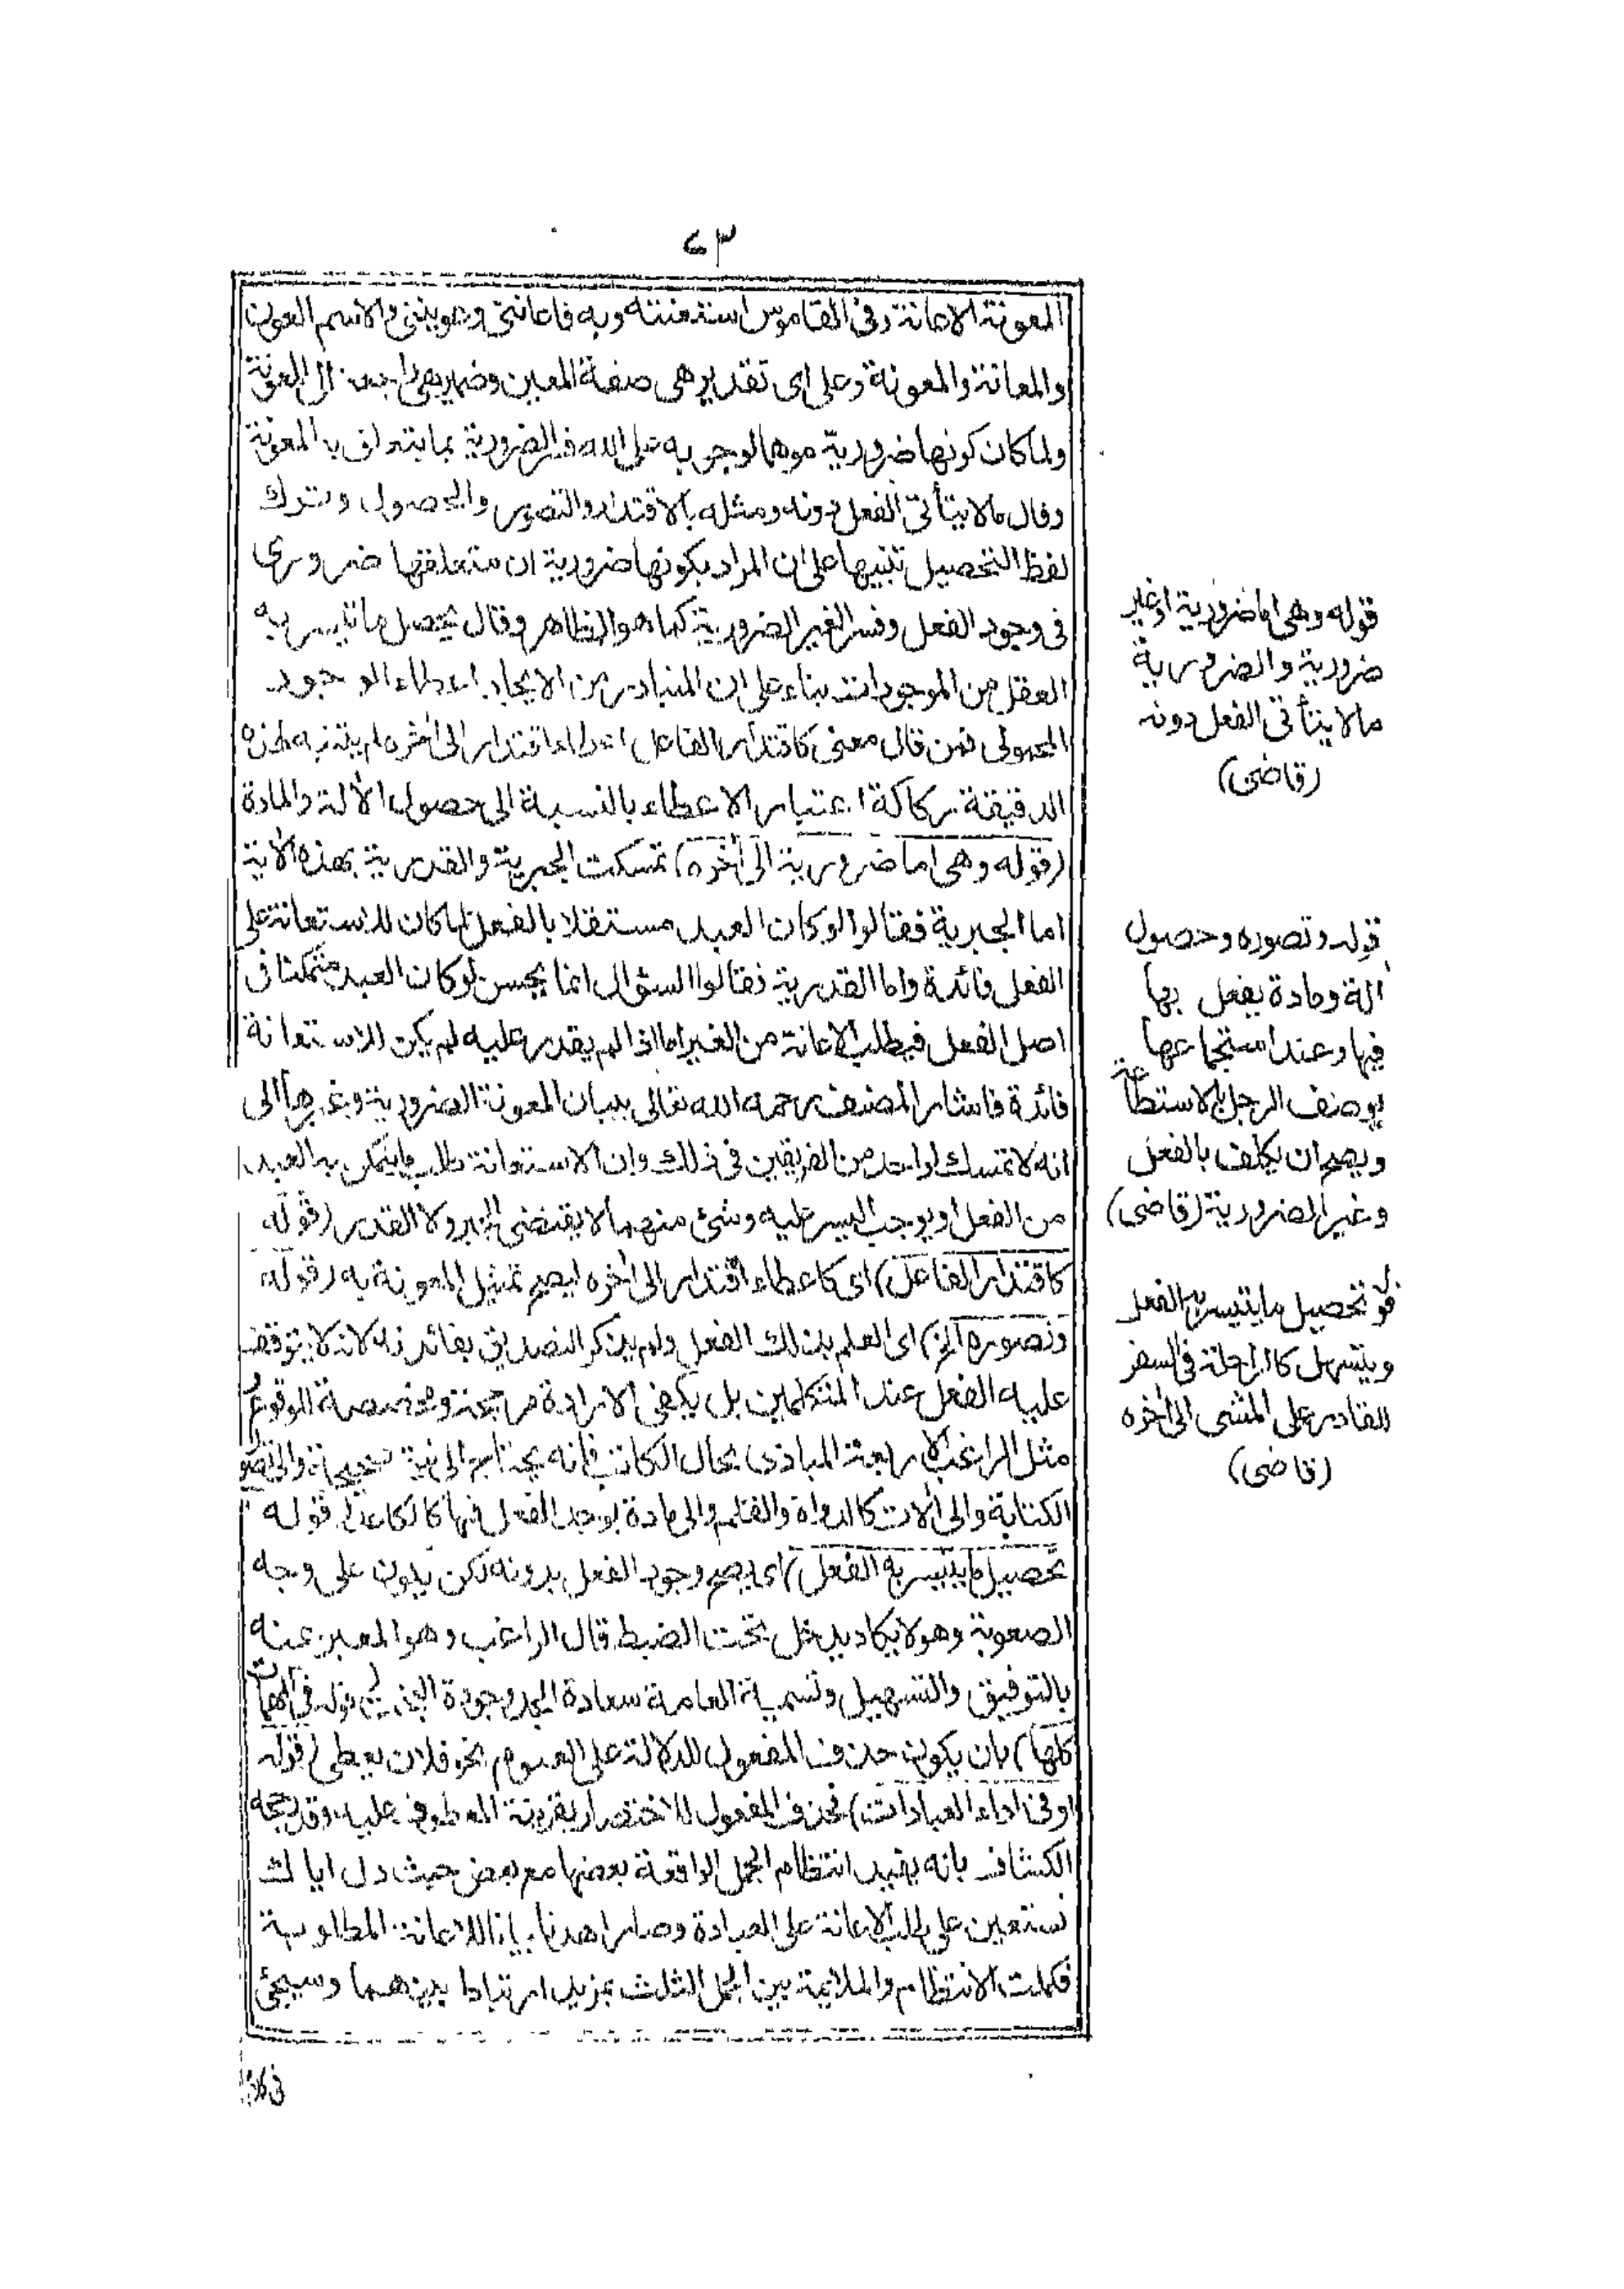 ٤٣
المعونة الاعانة وفى القاموس استعنته وبه فاعاننى وعوننى والاسم العون
والمعانة والمعونة وعلى اى تقدير هى صفة المعين وضمير هى راجع الى المعونة
ولما كان كونها ضرورية موهما لوجوبه على الله فسر الضرورية بما يتعلق به المعونة
وقال مالا يتأتى الفعل دونه ومثله بالاقتدار والتصور والحصول وترك
لفظ التحصيل تنبيها على ان المراد بكونها ضرورية ان متعلقها ضرورى
فى وجود الفعل وفسر الغير الضرورية كما هو الظاهر وقال تحصيل ما تيسر به
العقل من الموجودات بناء على ان المتبادر من الايجاد اعطاء الوجود
المحمولى فمن قال معنى كاقتدار الفاعل اعطاء اقتدار الى أخره لم يتنبه لهذه
الدقيقة مع ركاكة اعتبار الاعطاء بالنسبة الى حصول الألة والمادة
(قوله وهى اما ضرورية الى أخره) تمسكت الجبرية والقدرية بهذه الأية
اما الجبرية فقالوا لو كان العبد مستقلا بالفعل لما كان للاستعانة على
الفعل فائدة واما القدرية فقالوا السؤال انما يحسن لو كان العبد متمكنا فى
اصل الفعل فيطلب الاعانة من الغير اما اذا لم يقدر عليه لم يكن للاستعانة
فائدة فاشار المصنف رحمه الله تعالى ببيان المعونة الضرورية وغيرها الى
انه لا تمسك لواحد من الفريقين فى ذلك وان الاستعانة طلب ما يتمكن به العبد
من الفعل او يوجب اليسر عليه وشئ منهما لا يقتضى الجبر ولا القدر (قوله
كاقتدار الفاعل) اى كاعطاء اقتدار الى أخره ليصح تمثيل المعونة به (قوله
وتصوره الخ) اى العلم بذلك الفعل ولم يذكر التصديق بفائدته لانه لا يتوقف
عليه الفعل عند المتكلمين بل يكفى الارادة مرجحة ومخصصة للوقوع
مثل الراغب الاربعة المبادى بحال الكاتب فانه يحتاج الى نية صحيحة والى تصور
الكتابة والى ألات كالدواة والقلم والى مادة يوجد الفعل فيها كالكاغذ (قوله
تحصيل ما يتيسر به الفعل) اى يصح وجود الفعل بدونه لكن يكون على وجه
الصعوبة وهو لا يكاد يدخل تحت الضبط قال الراغب وهو المعبر عنه
بالتوفيق والتسهيل وتسمية العامة سعادة الجد وجودة البخت (قوله فى المهمات
كلها) بان يكون حذف المفعول للدلالة على العموم نحو فلان يعطى (قوله
او فى اداء العبادات) فحذف المفعول للاختصار بقرينة المعطوف عليه وقد رجحه
الكشاف بانه يفيد انتظام الجمل الواقعة بعضها مع بعض حيث دل اياك
نستعين على طلب الاعانة على العبادة وصار اهدنا بيانا للاعانة المطلوبة
فكملت الانتظام والملائمة بين الجمل الثلث بمزيد ارتباط بينهما وسيجئ
قوله وهى اما ضرورية او غير
ضرورية والضرورية
مالا يتأتى الفعل دونه
(قاضى)
قوله وتصوره وحصول
ألة ومادة يفعل بها
فيها وعند استجماعها
يوصف الرجل بالاستطاعة
ويصح ان يكلف بالفعل
وغير الضرورية (قاضى)
قوله تحصيل ما يتيسر به الفعل
ويتسهل كالراحلة فى السفر
للقادر على المشى الى أخره
(قاضى)